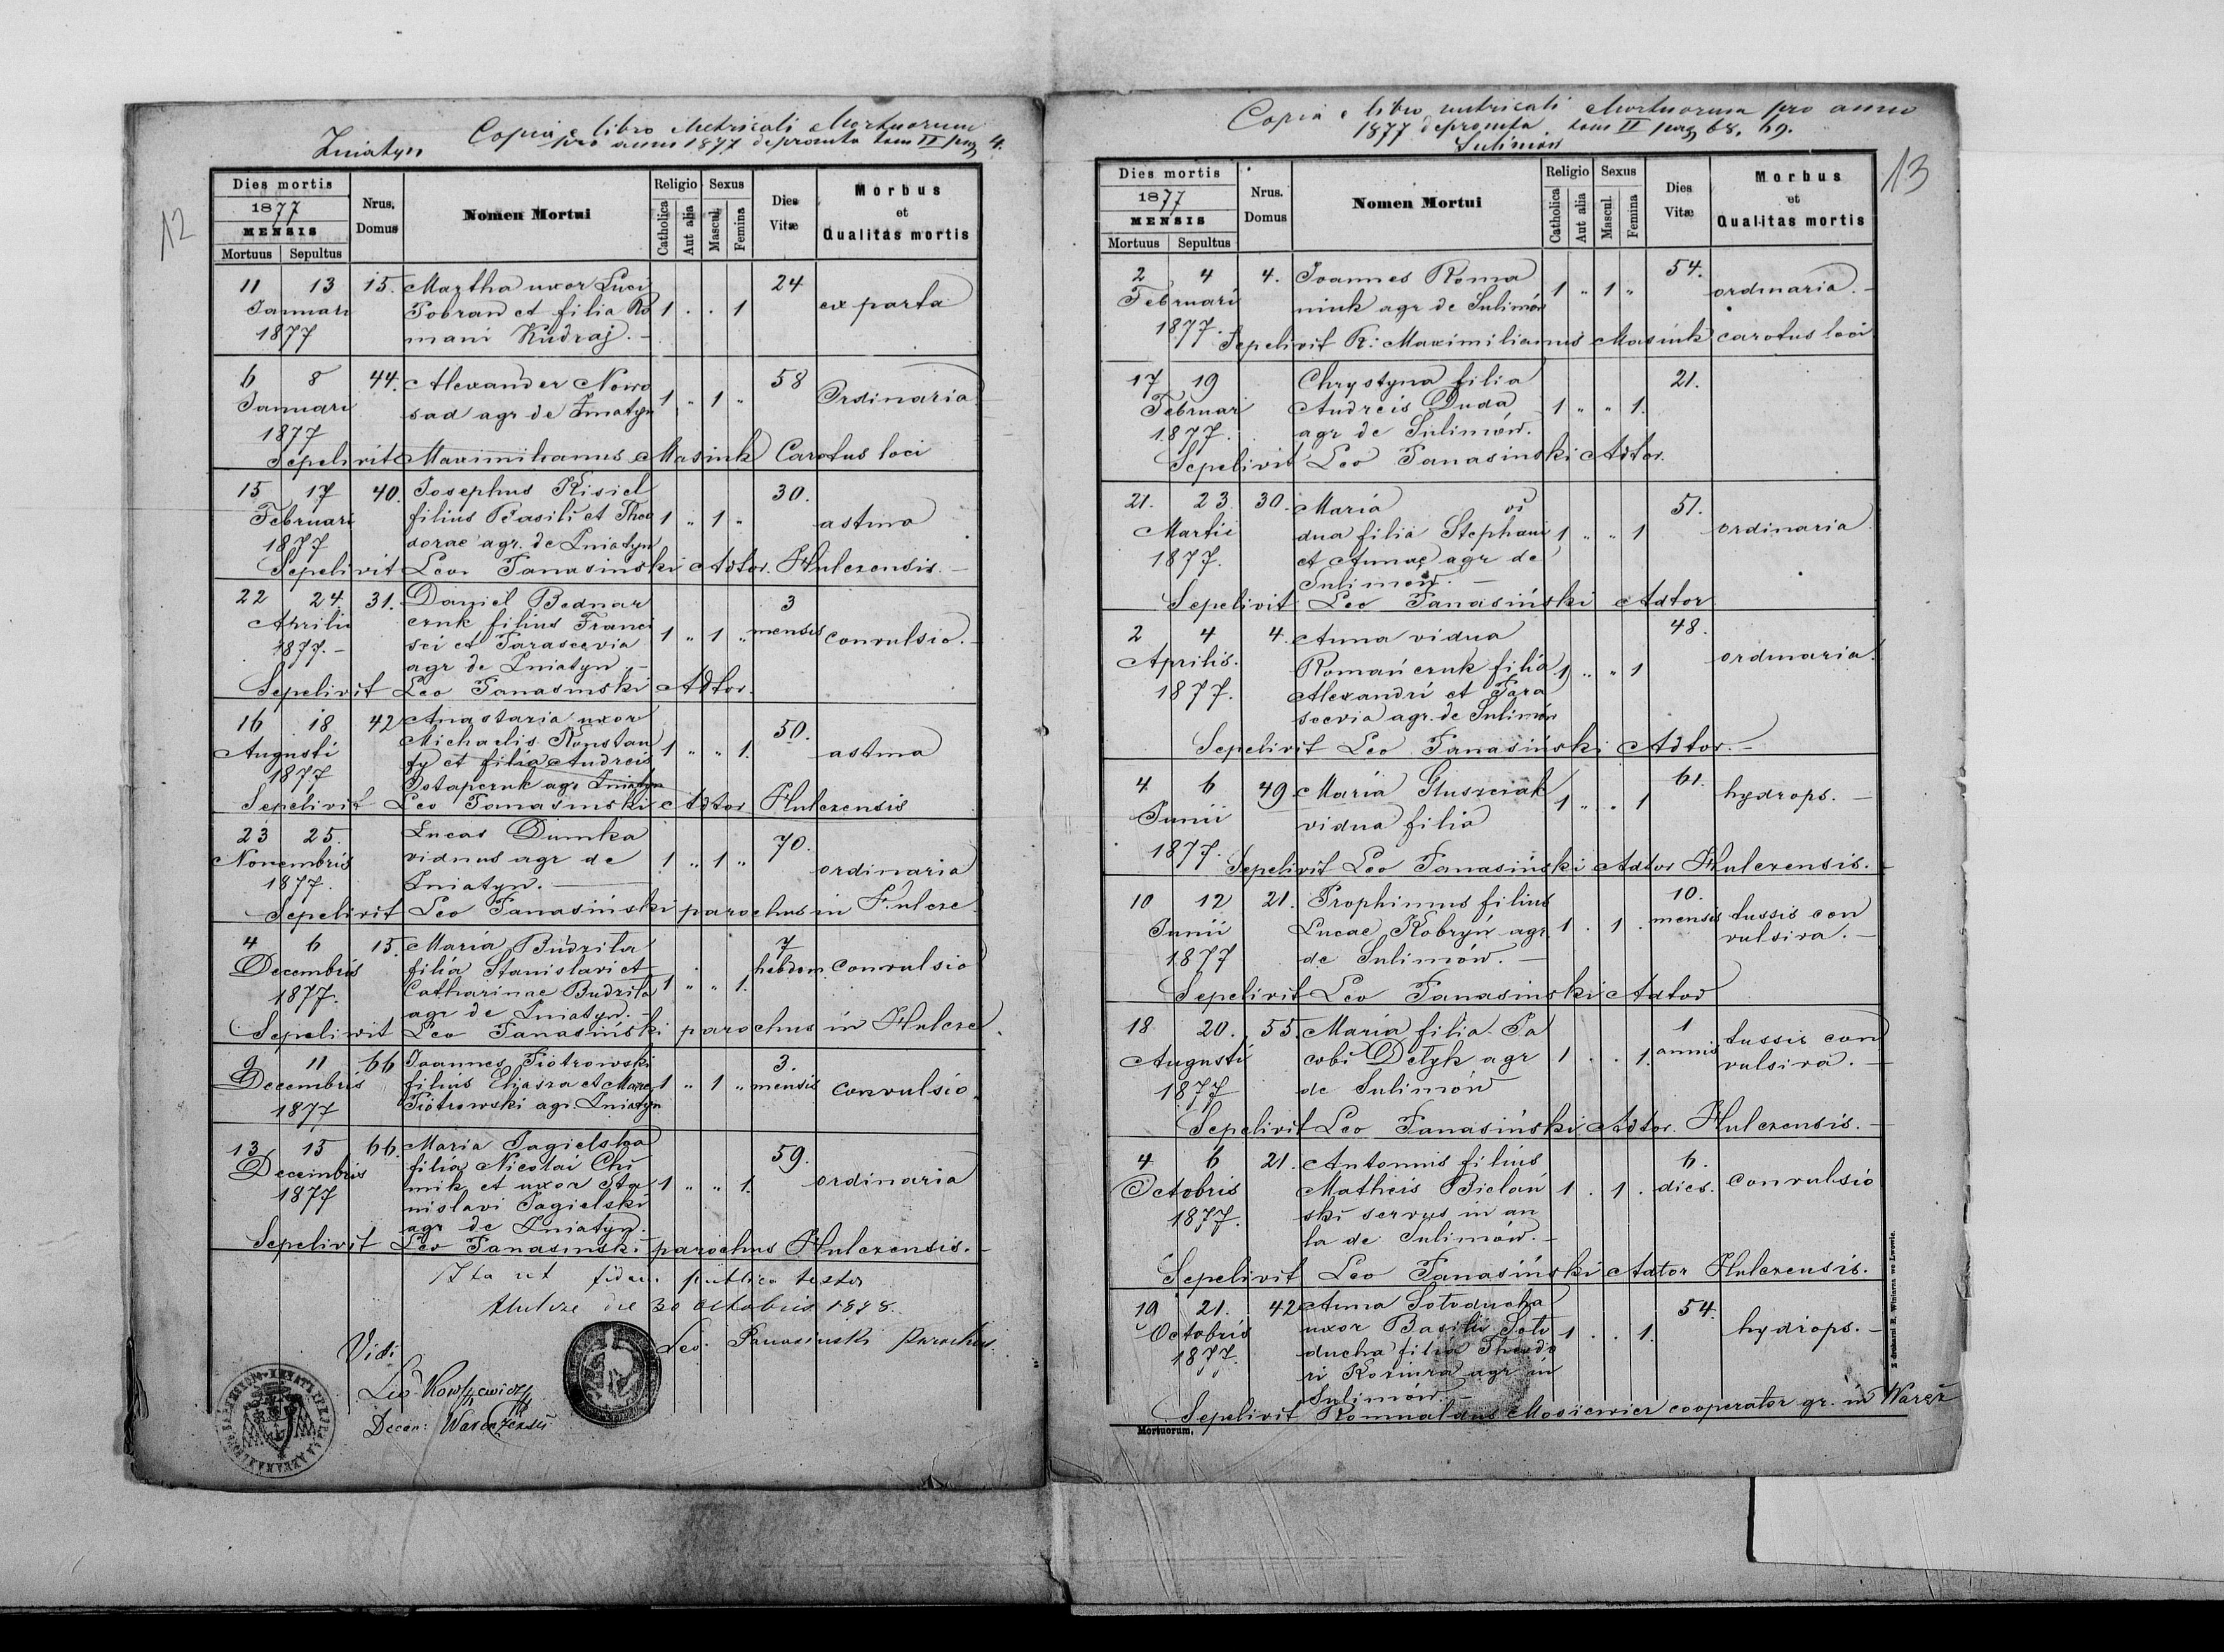 Żniatyn
Copia e libro Metricali Mortuorum
pro anno 1877 depromta tom II pag 4.
12
Dies mortis
1877
MENSIS
Mortuus Sepultus
Nrus. Domus
Nomen Mortui
Religio
Catholica
Aut alia
Sexus
Mascul.
Femina
Dies Vitæ
Morbus
et
Qualitas mortis
11 13 15. Martha uxor Luci 24
Januari Pobran et filia Ro 1 . . 1 ex parta
1877 mani Kudraj. –
6 8 44. Alexander Nowo 58
Januari sad agr de Zniatyn 1 „ 1 „ Ordinaria
1877
Sepelivit Maximilianus Masiuk Carotus loci
15 17 40. Josephus Kisiel 30.
Februari filius Wasili et Theo 1 „ 1 „ astma
1877 dorae agr. de Zniatyn
Sepelivit Leo Panasinski Adtor. Hulczensis. –
22 24 31. Daniel Bednar 3
Aprilis czuk filius Franci 1 „ 1 „ mensis convulsio. –
1877. – sci et Parascevia
agr de Zniatyn. –
Sepelivit Leo Panasinski Adtor.
16 18 42 Anastazia uxor 50.
Augusti Michaelis Konstan 1 „ „ 1. astma
1877 ty et filia Andreis
Ostapczuk agr Zniatyn
Sepelivit Leo Panasinski Adtor Hulczensis
23 25. Lucas Dumka 70.
Novembris viduus agr de 1 „ 1 „ ordinaria
1877. Zniatyn. –
Sepelivit Leo Panasiński parochus in Hulcze
4 6 15. Maria Budziła 7
Decembris filia Stanislavi et hebdom. convulsio
1877. Catharinae Budziła 1 „ „ 1.
agr de Zniatyn. –
Sepelivit Leo Panasiński parochus in Hulcze.
9 11 66 Joannes Piotrowski 3.
Decembris filius Eliasza et Mary 1 „ 1 „ mensis convulsio.
1877 Piotrowski agr. Zniatyn
13 15 66. Maria Jagielska 59.
Decembris filia Nicolai Chi
1877 mik et uxor Sta 1 „ „ 1. ordinaria
nislavi Jagielski
agr de Zniatyn.
Sepelivit Leo Panasinski parochus Hulczensis. –
Ita ut fidem publica testor
Hulcze die 30 Octobris 1878.
Leo Panasinski Parochus.
Vidi
Decan: Warężensis
Copia e libro metricali Mortuorum pro anno
1877 depromta tom II pag 68, 69.
Sulimów
13
Dies mortis
1877
MENSIS
Mortuus Sepultus
Nrus. Domus
Nomen Mortui
Religio
Catholica
Aut alia
Sexus
Mascul.
Femina
Dies Vitæ
Morbus
et
Qualitas mortis
2 4 4. Joannes Roma 54.
Februari niuk agr de Sulimów 1 „ 1 „ ordinaria. –
1877. Sepelivit R: Maximilianus Masiuk carotus loci
17 19 Chrystyna filia 21.
Februari Andreis Duda 1 „ „ 1.
1877. agr de Sulimów.
Sepelivit Leo Panasinski Adtor.
21. 23. 30. Maria vi 51.
Martii dua filia Stephani 1 „ „ 1 ordinaria
1877. et Annae agr de
Sulimów. –
Sepelivit Leo Panasiński Adtor
2 4 4. Anna vidua 48.
Aprilis. Romańczuk filia 1 „ „ 1 ordinaria.
1877. Alexandri et Para
scevia agr. de Sulimów
Sepelivit Leo Panasiński Adtor. –
4 6 49 Maria Głuszciak 61.
Junii vidua filia 1 „ . 1 hydrops. –
1877. Sepelivit Leo Panasiński Adtor Hulczensis. –
10 12 21. Prophimus filius 10.
Junii Lucae Kobryń agr. 1 . 1 . mensis tussis con
1877 de Sulimów. – vulsiva. –
Sepelivit Leo Panasinski Adtor
18 20. 55. Maria filia Ja 1
Augusti cobi Dełyk agr 1 . . 1. annis tussis con
1877 de Sulimów vulsiva. –
Sepelivit Leo Panasiński Adtor. Hulczensis. –
4 6 21. Antonius filius 6.
Octobris Matheis Bielań 1 . 1 . dies. convulsio
1877. ski servus in au
la de Sulimów. –
Sepelivit Leo Panasiński Adtor Hulczensis.
19 21. 42 Anna Sołoducha 54.
Octobris uxor Basilii Soło 1 . . 1. hydrops. –
1877. ducha filia Theodo
ri Kozinra agr in
Sulimów. –
Sepelivit Romualdus Mosiewicz cooperator gr. in Waręż
Mortuorum.
Z drukarni E. Winiarza we Lwowie.